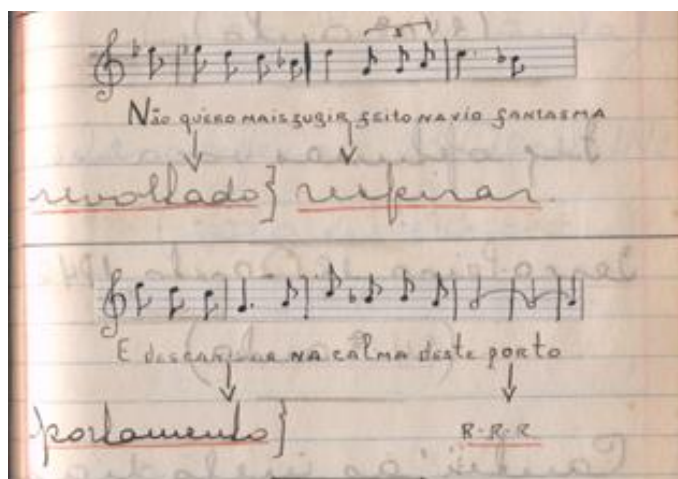 3
Não quero mais fugir feito navio fantasma
revoltado} respirar.
E descansar na calma deste porto
portamento}
R-R-R